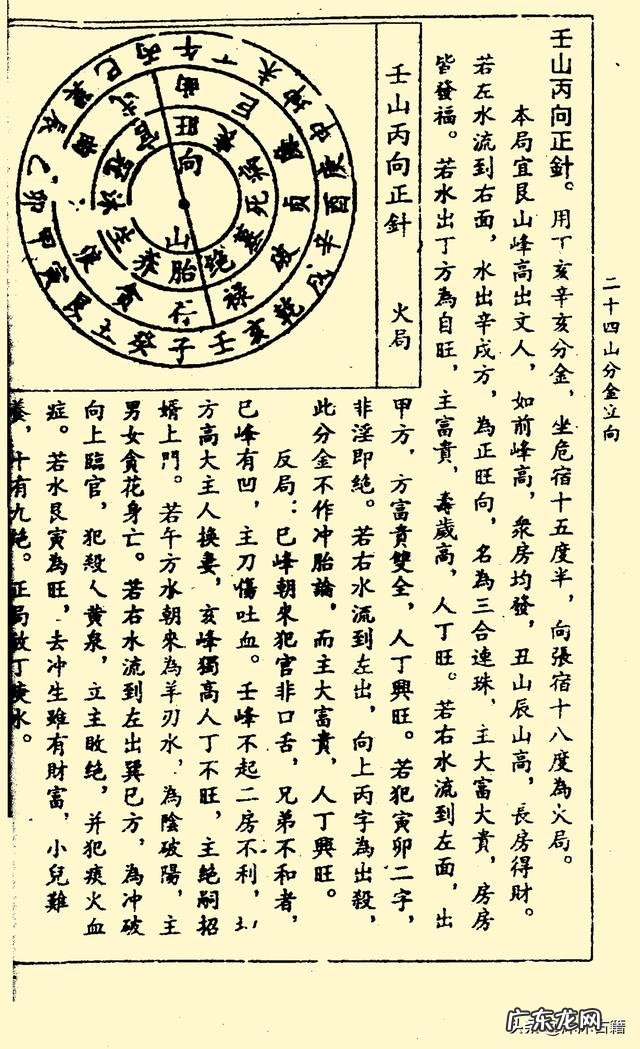 二十四山分金立向
壬山丙向正針。用丁亥辛亥分金，坐危宿十五度半，向張宿十八度為火局。
本局宜艮山峰高出文人，如前峰高，衆房均發，丑山辰山高，長房得財。
若左水流到右面，水出辛戌方，為正旺向，名為三合連珠，主大富大貴，房房
皆發福。若水出丁方為自旺，主富貴，壽歲高，人丁旺。若右水流到左面，出
壬山丙向正針 火局
午丁未坤申庚酉辛戌乾亥壬子癸丑艮寅甲卯乙辰巽巳丙
巨廉貞破祿貪武
旺衰病死墓絕胎養生冠官
向
山
甲方，方富貴雙全，人丁興旺。若犯寅卯二字，
非淫即絕。若右水流到左出，向上丙字為出殺，
此分金不作冲胎論，而主大富貴，人丁興旺。
反局：巳峰朝來犯官非口舌，兄弟不和者，
巳峰有凹，主刀傷吐血。壬峰不起二房不利，
方高大主人換妻，亥峰獨高人丁不旺，主絕嗣招
婿上門。若午方水朝來為羊刃水，為陰破陽，主
男女貪花身亡。若右水流到左出巽巳方，為冲破
向上臨官，犯殺人黃泉，立主敗絕，并犯痰火血
症。若水艮寅為旺，去冲生雖有財富，小兒難
養，十有九絕。正局放丁庚水。
广东龙网